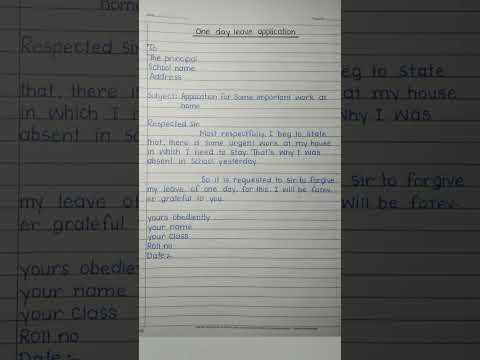 One day leave application
To
The principal
School name
Address
Subject: Application for some important work at
home
Respected Sir
Most respectfully, I beg to state
that, there is some urgent work at my house
in which I need to stay. That's why I was
absent in school yesterday.
So it is requested to sir to forgive
my leave of one day. for this, I will be forev-
er grateful to you.
yours obediently
your name
your class
Roll no
Date :-